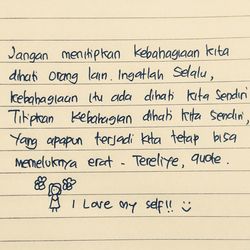 Jangan menitipkan kebahagiaan kita
dihati orang lain. Ingatlah Selalu,
kebahagiaan itu ada dihati kita sendiri
Titipkan kebahagian dihati kita sendiri,
Yang apapun terjadi kita tetap bisa
memeluknya erat - Tereliye, quote.
I Love my self!!